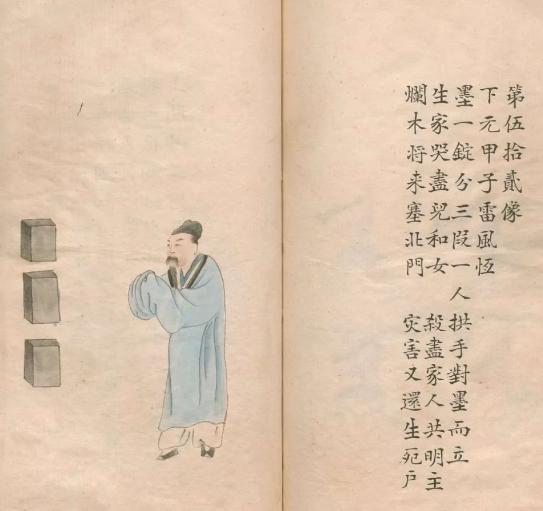 第伍拾貳像
下元甲子雷風恆
墨一錠分三段一人拱手對墨而立
生家哭盡兒和女 殺盡家人共明主
爛木将来塞北門 灾害又還生死户